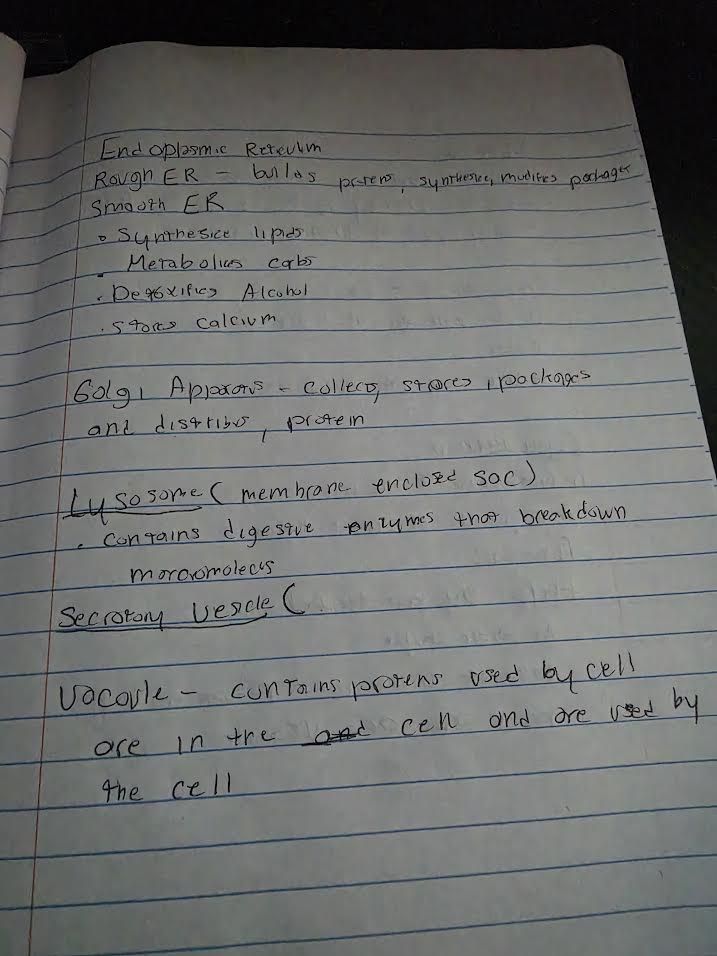 Endoplasmic Reticulm
Rough ER - builds protens, synthesice, modifies packages
Smooth ER
Synthesice lipids
Metabolices carbs
Detoxifies Alcohol
Stores calcium
Golgi Apparatus - collects, stores, packages
and distribus, protein
Lysosome (membrane enclosed sac)
contains digestive enzymes that breakdown
Secrotory Vesicle (
Vacoule - contains protens used by cell
are in the and cell and are used by
the cell